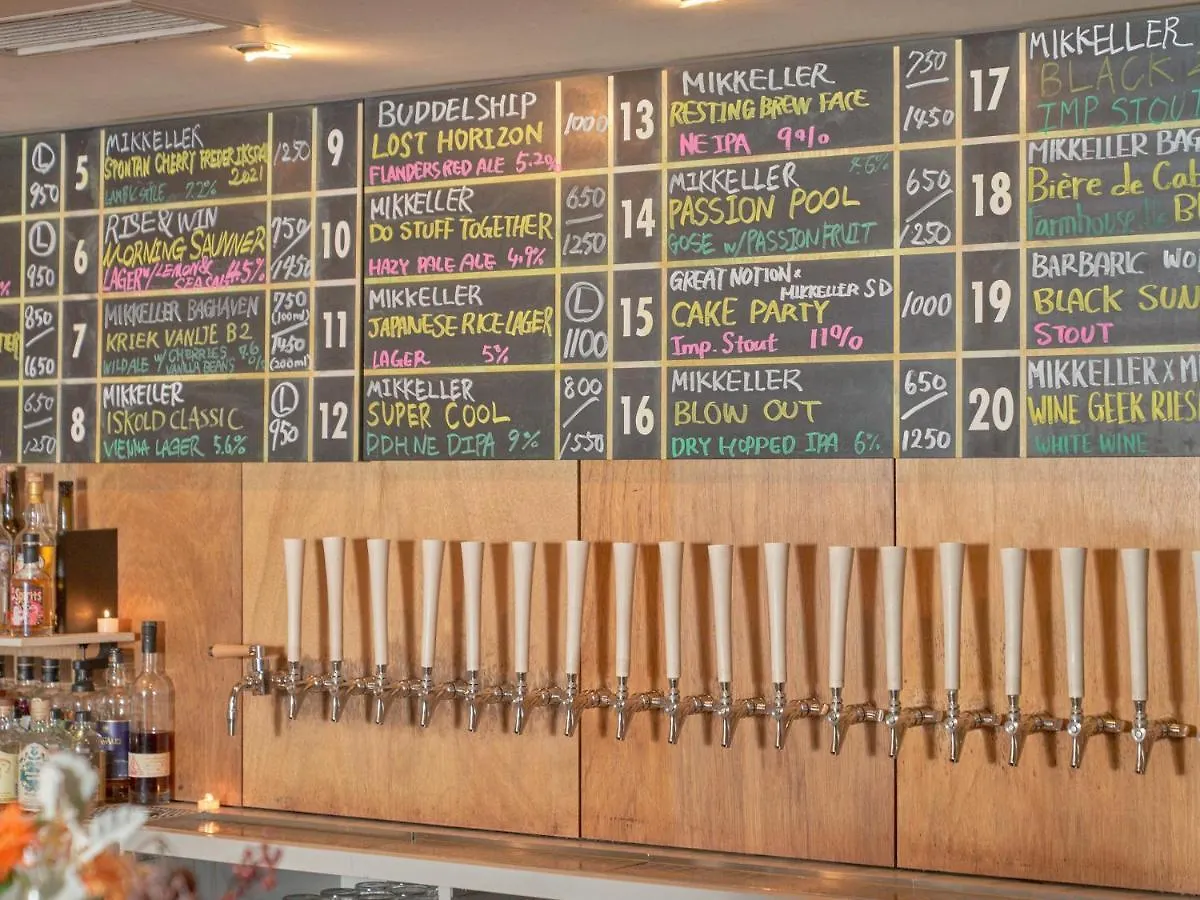 L
950
5
MIKKELLER
SPONTAN CHERRY FREDERIKSDAL
2021
LAMBIC STYLE 7.2%
1250
L
950
6
RISE & WIN
MORNING SAUNNER
LAGER w/ LEMON &
SEASALT 4.5%
750
1450
850
1650
7
MIKKELLER BAGHAVEN
KRIEK VANLJE B2
WILD ALE w/ CHERRIES 7.6%
VANILLA BEANS
750
(100ml)
1450
(200ml)
650
1250
8
MIKKELLER
ISKOLD CLASSIC
VIENNA LAGER 5.6%
L
950
9
BUDDELSHIP
LOST HORIZON
FLANDERS RED ALE 5.2%
1000
10
MIKKELLER
DO STUFF TOGETHER
HAZY PALE ALE 4.9%
650
1250
11
MIKKELLER
JAPANESE RICE LAGER
LAGER 5%
L
1100
12
MIKKELLER
SUPER COOL
DDH NE DIPA 9%
800
1550
13
MIKKELLER
RESTING BREW FACE
NE IPA 9%
750
1450
14
MIKKELLER 4.6%
PASSION POOL
GOSE w/ PASSION FRUIT
650
1250
15
GREAT NOTION &
MIKKELLER SD
CAKE PARTY
Imp. Stout 11%
1000
16
MIKKELLER
BLOW OUT
DRY HOPPED IPA 6%
650
1250
17
MIKKELLER
BLACK
IMP STOUT
18
MIKKELLER BAG
Bière de Cat
Farmhouse
19
BARBARIC WO
BLACK SUN
STOUT
20
MIKKELLER X M
WINE GEEK RIES
WHITE WINE
Spirits